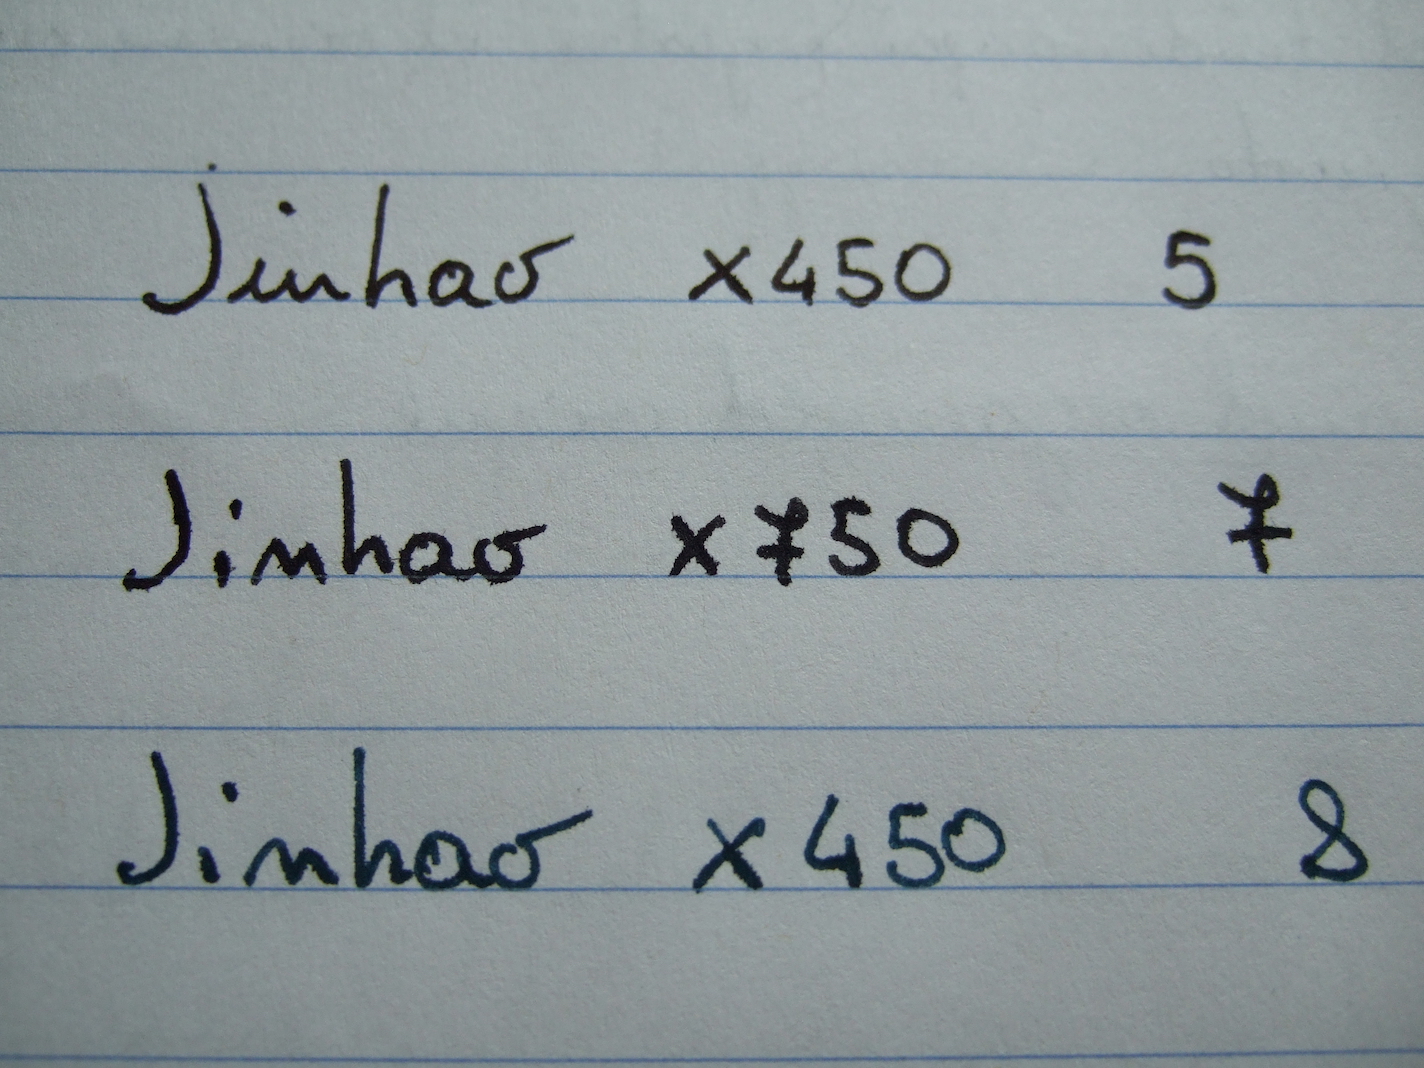 Jinhao x450 5
Jinhao x750 7
Jinhao x450 8